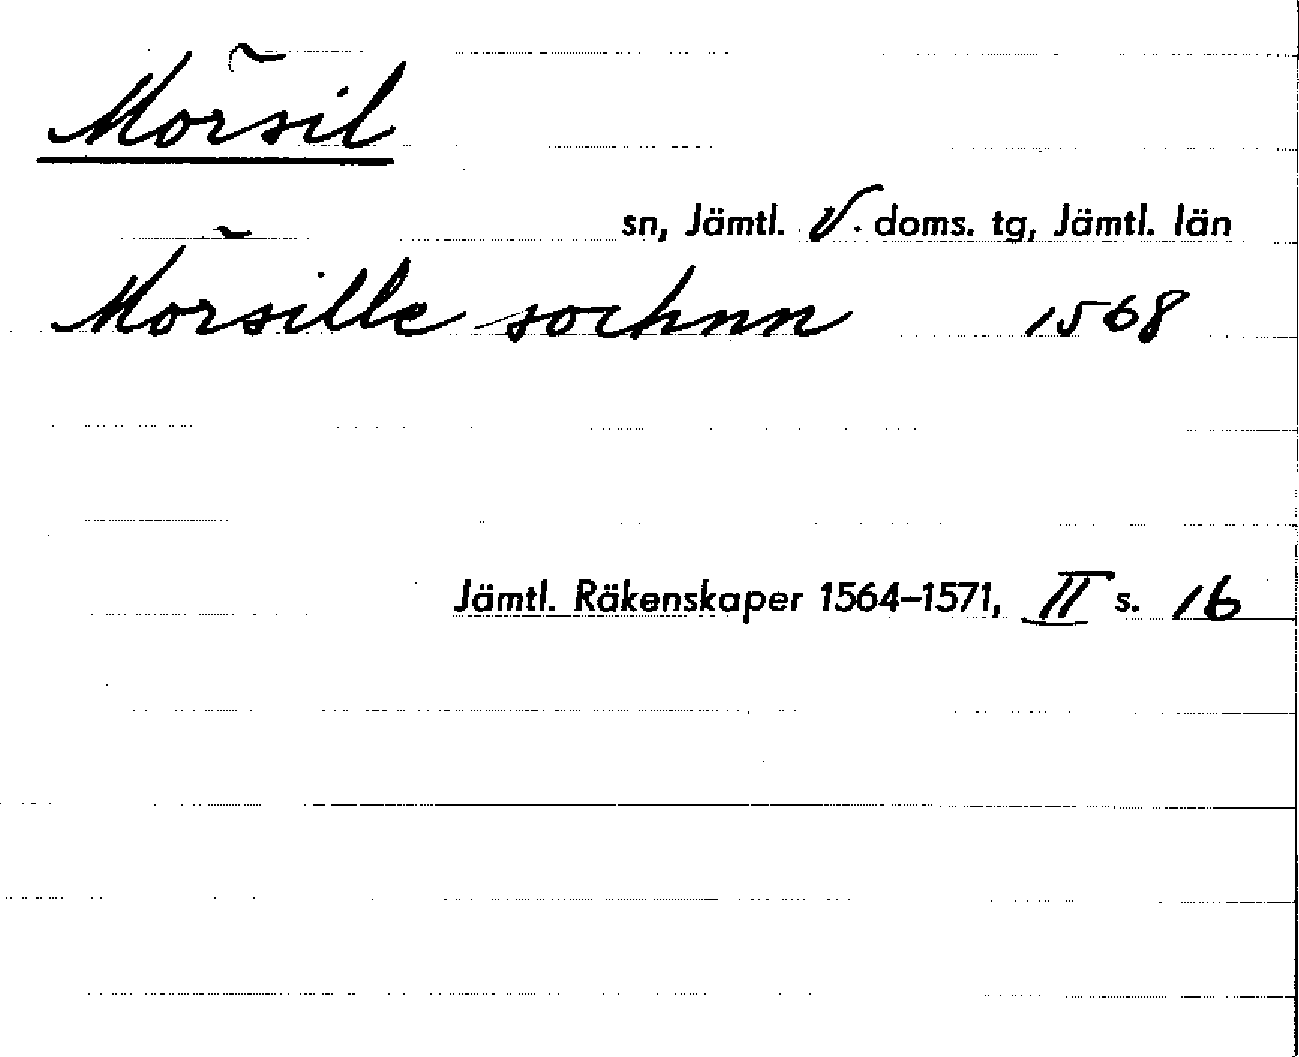 Mörsil
sn, Jämtl. V. doms. tg, Jämtl. län
Mörsille sochnn 1568
Jämtl. Räkenskaper 1564–1571, II s. 16